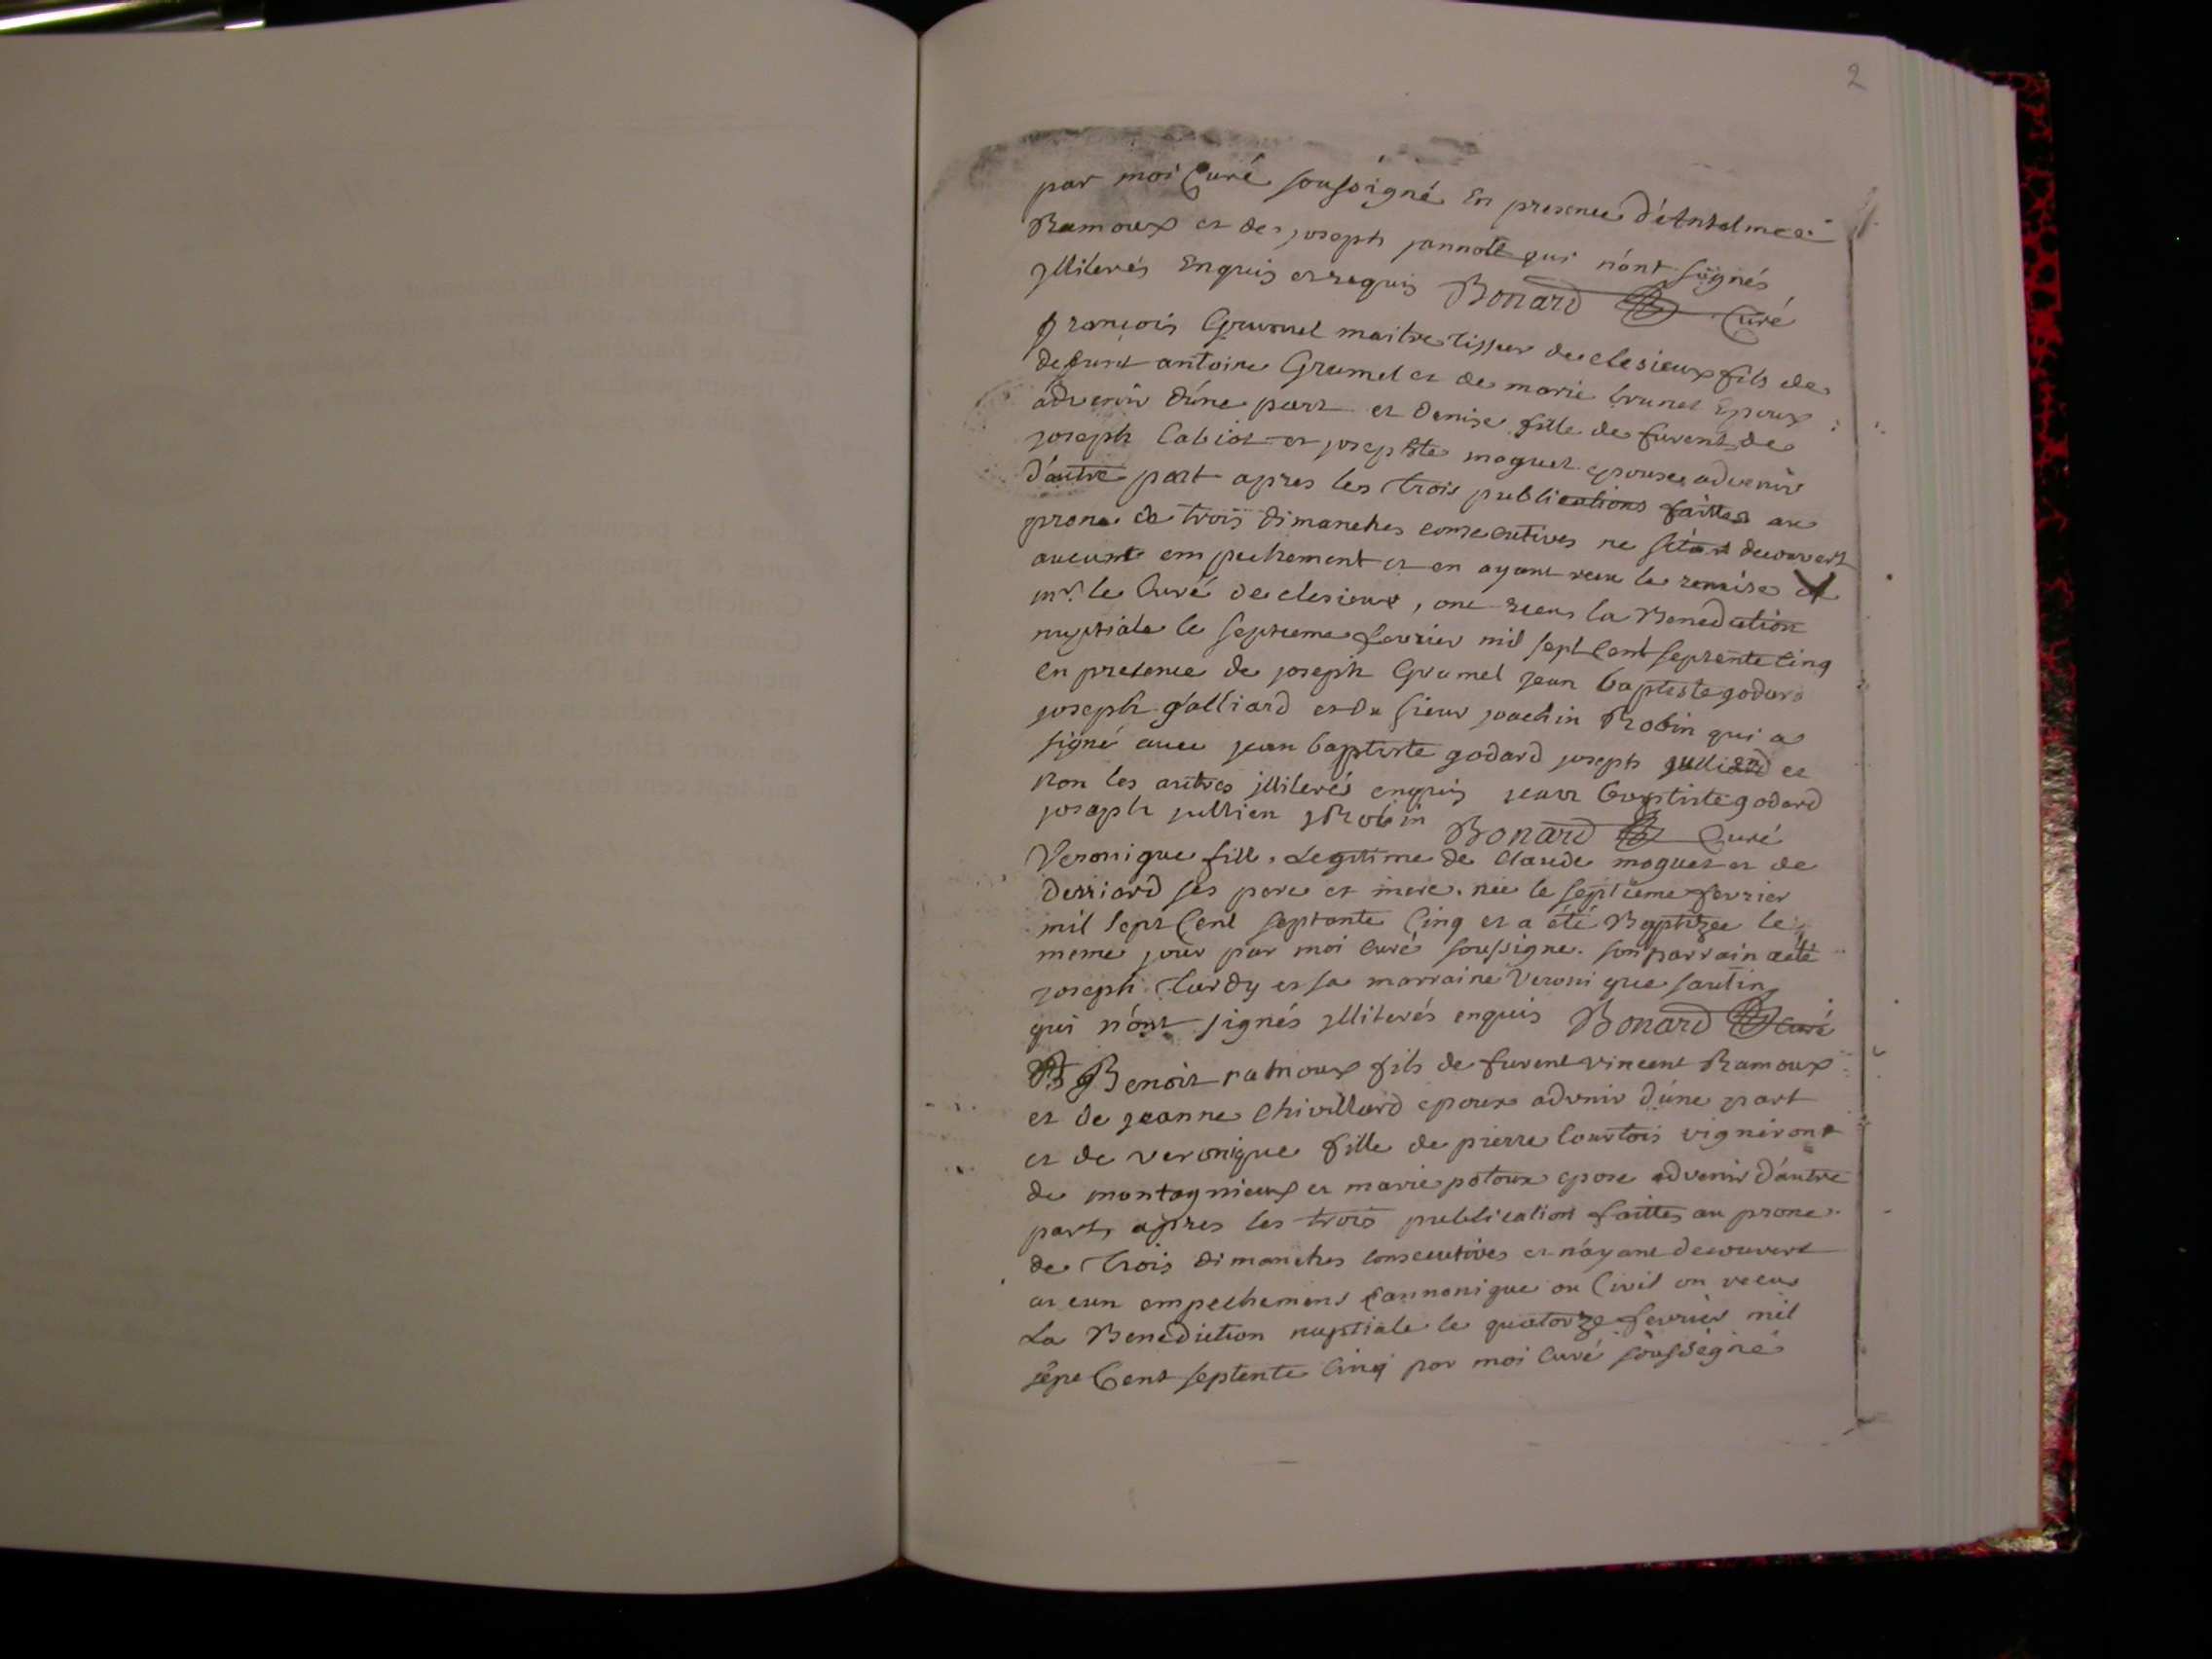 2
par moi Curé soussigné En presence d'Antelme
Ramoux et de joseph jannot qui n'ont signés
jlliterés Enquis et requis Bonard Curé
françois Grumel maitre tisseur de clesieux fils de
defunt antoine Grumel et de marie brunet Epoux
advenir d'une part et Denise fille de furent de
joseph Cabiot et josephte moguet epouse advenir
d'autre part apres les trois publications faittes au
prone de trois dimanches consecutives ne s'etant decouvert
aucunt empechement et en ayant reçu la remise de
mr. le Curé de clesieux, ont reçus la Benediction
nuptiale le septieme fevrier mil sept Cent septente Cinq
En presence de joseph Grumel jean baptiste godard
joseph galliard et du sieur joachin Robin qui a
signé avec jean baptiste godard joseph et
non les autres jlliterés enquis jean baptiste godard
joseph jullien j Robin Bonard Curé
Veronique fille Legitime de Claude moguet et de
Derriard ses pere et mere. née le septieme fevrier
mil sept Cent septante Cinq et a été Baptizee le
meme jour par moi Curé soussigne. son parrain a été
joseph Tardy et sa marraine Veronique sautin
qui n'ont signés jlliterés enquis Bonard Curé
Benoit ramoux fils de furent vincent Ramoux
et de jeanne Chivillard epoux advenir d'une part
et de veronique fille de pierre Courtois vigneront
de montagnieux et marie potoux epose advenir d'autre
part, apres les trois publication faittes au prone
de trois dimanches consecutives et n'ayant decouvert
aucun empechement Cannonique ou Civil on recus
La Benediction nuptiale le quatorze fevrier mil
sept Cent septente Cinq par moi Curé soussigné